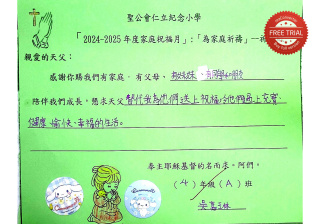 聖公會仁立紀念小學
「2024-2025年度家庭祝福月」:「為家庭祈禱」一
FREE TRIAL
親愛的天父:
感謝你賜我們有家庭,有父母、
陪伴我們成長,懇求天父替代我為他們送上祝福,給他們過上充實、
健康、愉快、幸福的生活。
奉主耶穌基督的名而求,阿們。
(4)年級(A)班
吳